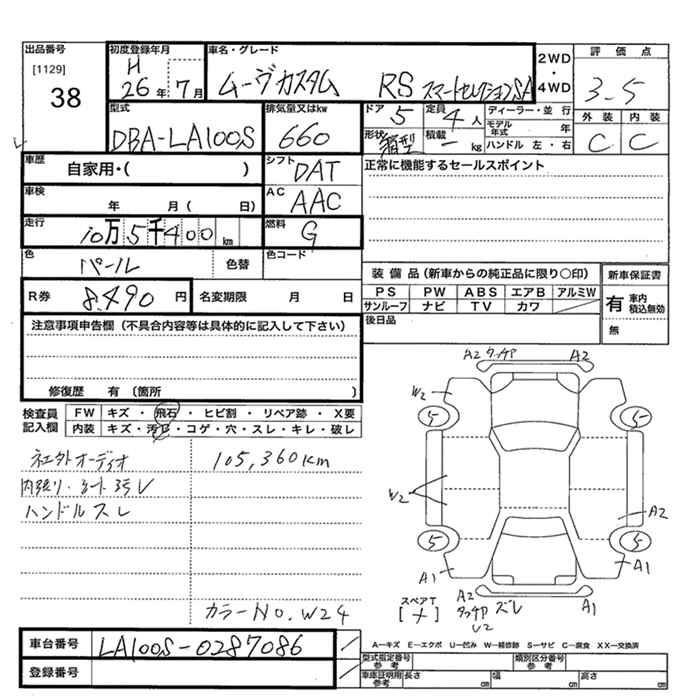 出品番号
[1129]
38
初度登録年月
H
26年7月
車名・グレード
ムーヴカスタム RS スマートセレクションSA
2WD
・
4WD
評価点
3.5
外装 内装
C C
型式
DBA-LA100S
排気量又はkw
660
ドア
5
定員
4人
ディーラー・並行
モデル年式 年
形状
箱型
積載
ー kg
ハンドル 左・右
車歴
自家用・( )
シフト
DAT
正常に機能するセールスポイント
車検
年 月 ( 日)
AC
AAC
走行
10万5千400km
燃料
G
色
パール
色替
色コード
装備品 (新車からの純正品に限り〇印)
新車保証書
PS PW ABS エアB アルミW
サンルーフ ナビ TV カワ
有 車内積込無効
無
R券
8,490円
名変期限 月 日
後日品
注意事項申告欄 (不具合内容等は具体的に記入して下さい)
修復歴 有 (箇所 )
検査員記入欄
FW キズ・飛石・ヒビ割・リペア跡・X要
内装 キズ・汚レ・コゲ・穴・スレ・キレ・破レ
社外オーディオ
105,360km
ハンドルスレ
カラーNO. W24
A2 タッチP A2
W2
5 5
W2
A2
5 5
A1 A1
スペアT
[メ]
A2 A1
タッチP ズレ
U2
車台番号
LA100S-0287086
登録番号
A-キズ E-エクボ U-凹み W-補修跡 S-サビ C-腐食 XX-交換済
型式指定番号 参考
類別区分番号 参考
車庫証明用 参考
長さ cm 幅 cm 高さ cm